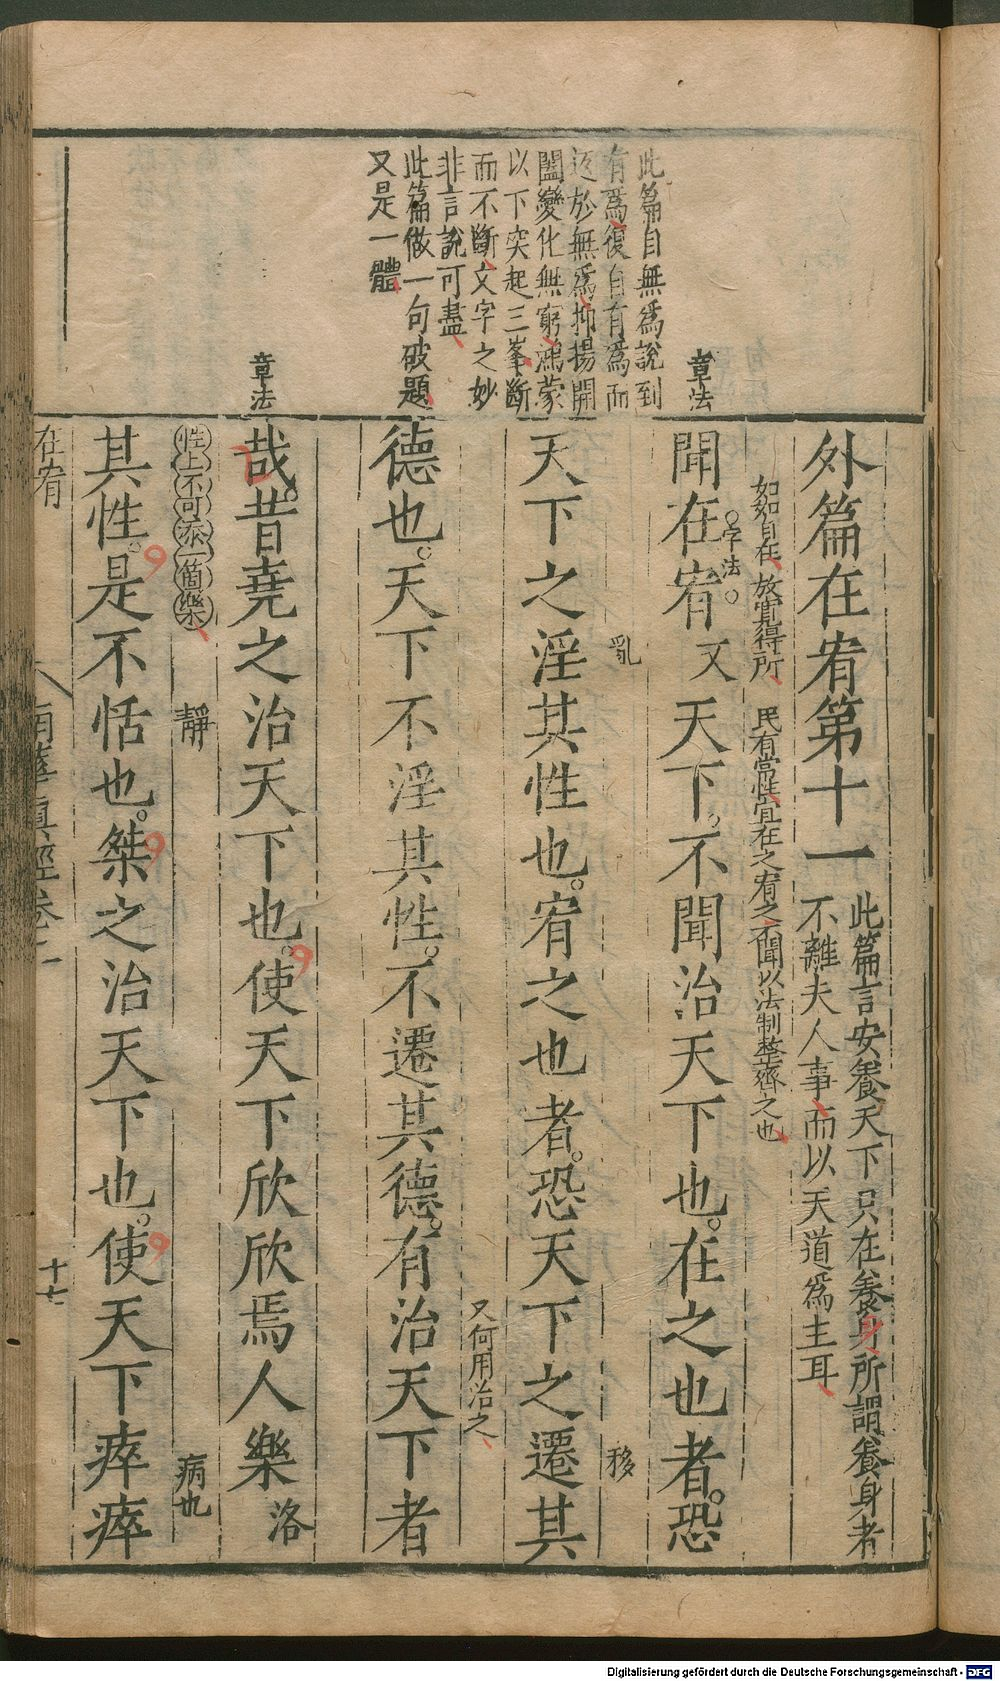 此篇自無爲說到
有爲復自有爲而
返於無爲抑揚開
闔變化無窮鴻蒙
以下突起三峯斷
而不斷文字之妙
非言說可盡
此篇做一句破題
又是一體
章法
章法
外篇在宥第十一
此篇言安養天下只在養身所謂養身者
不離夫人事而以天道爲主耳
如如自在放寬得所 民有常性宜在之宥之不聞以法制整齊之也
聞在宥又天下不聞治天下也在之也者恐
字法
亂 移
天下之淫其性也宥之也者恐天下之遷其
又何用治之
德也天下不淫其性不遷其德有治天下者
哉昔堯之治天下也使天下欣欣焉人樂洛
性上不可添一箇樂 靜 病也
其性是不恬也桀之治天下也使天下瘁瘁
在宥 南華眞經卷 十七
Digitalisierung gefördert durch die Deutsche Forschungsgemeinschaft - DFG